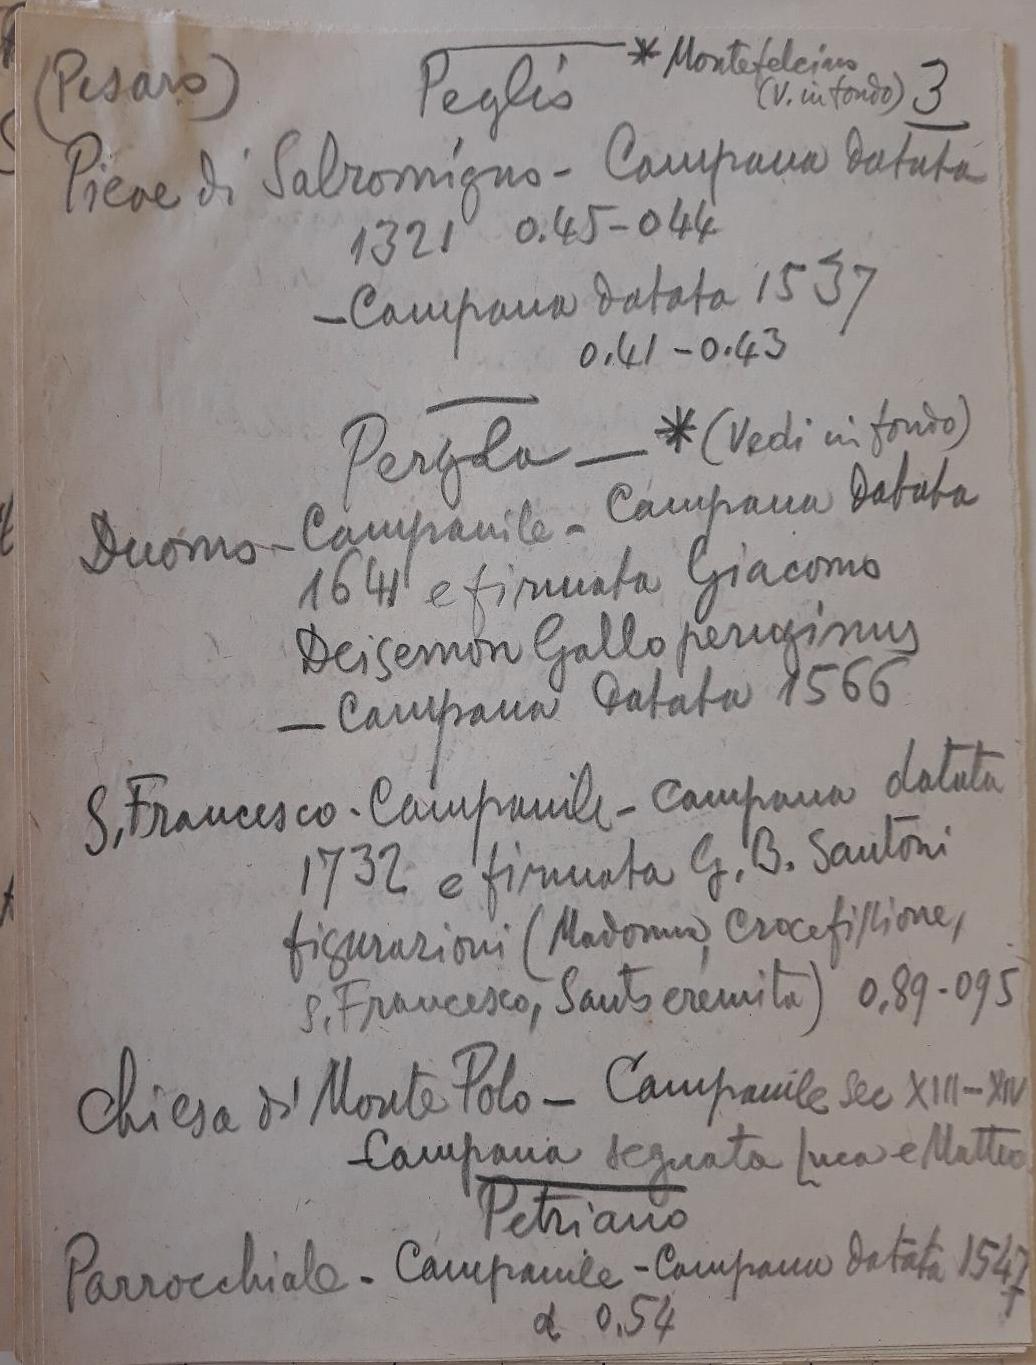 (Pesaro) Peglio * Montefelcino
(V. in fondo) 3
Pieve di Salromigno - Campana datata
1321 0.45-044
- Campana datata 1537
0.41-0.43
Pergola - * (Vedi in fondo)
Duomo - Campanile - Campana datata
1641 e firmata Giacomo
Deisemon Gallo peruginus
- Campana datata 1566
S. Francesco - Campanile - Campana datata
1732 e firmata G. B. Santoni
figurazioni (Madonna, Crocefissione,
S. Francesco, Santo eremita) 0,89-095
Chiesa di Monte Polo - Campanile sec XIII-XIV
- Campana segnata Luca e Matteo
Petriano
Parrocchiale - Campanile - Campana datata 1547
d 0,54